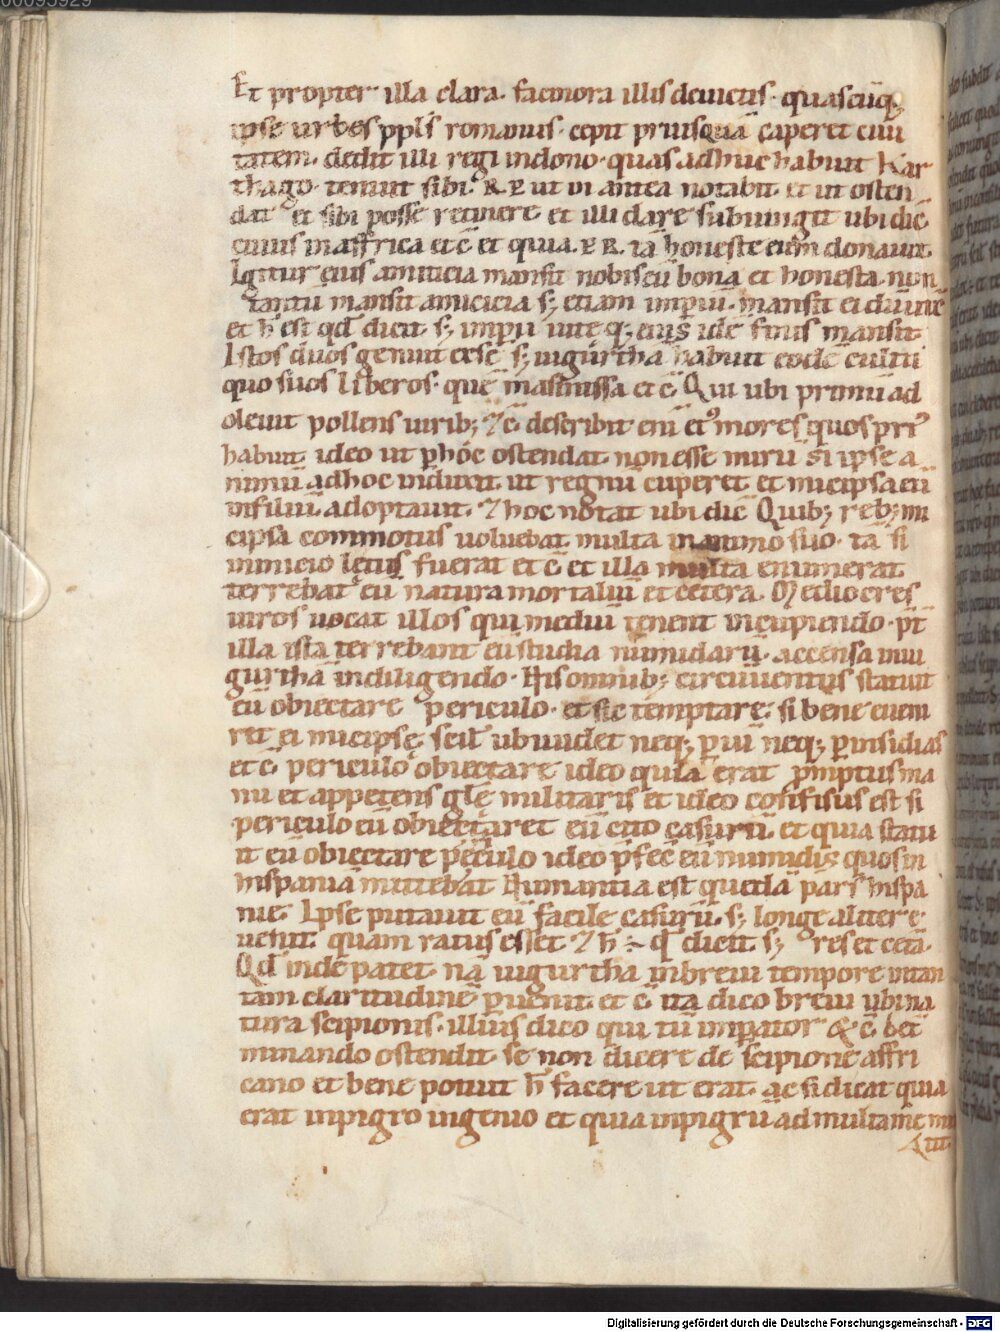 00095929
Et propter illa clara. facinora illis deuictis. quascūq;
ipse urbes ppl's romanus. cepit priusquā caperet ciui
tatem. dedit illi regi indono. quas adhuc habuit Kar
thago. tenuit sibi. R. P. ut ui antea notabit. et ut osten
dat et sibi posse retinere. et illi dare subiungit ubi dic̄
cuius inaffrica et c̄ et quia. P R. tā honeste eum donauit.
Igitur eius amiticia mansit nobiscū bona et honesta. non
tantū mansit amicicia s; etiam impiū. mansit ei diuine
et h̄ est qd̄ dicit. s; impii uiteq; eius idē finis mansit.
Istos duos genuit exse s; iugurtha habuit eodē cultu
quo suos liberos. quē masinissa et c̄ Qui ubi primū ad
oleuit pollens uirib; 7 c̄ describit eni ei' mores quos pri'
habuit. ideo ut phoc ostendat non esse mirū si ipse a
nimū adhoc induxit ut regnū cuperet et micipsa eū
infiliū. adoptauit. 7 hoc notat ubi dic̄ Quib; reb; mi
cipsa commotus uoluebat multa inanimo suo. tā si
inimicio lętus fuerat et c̄ et illa multa enumerat
terrebat eū natura mortaliū et cetera. Mediocres
uiros uocat illos qui mediū tenent incupiendo. pt̄
illa ista terrebant eū studia numidarū. accensa iniu
gurthā indiligendo. His omnib; circūuentus statuit
eū obiectare periculo. et sic temptare. si bene euem
ret ei micipsę. scil' ubi uidet neq; p uī neq; pinsidias
et c̄. periculo obiectare ideo quia erat pmptus ma
nu et appetens glę militaris et ideo cōfisus est si
periculo eū obiectaret eū cito casurū. et quia statu
it eū obiectare periculo ideo pfec̄ eū numidis quos in
hispaniā mittebat Numantia est quedā pars hispa
nie. Ipse putauit eū facile casurū. s; longe aliter e
uenit. quam ratus esset 7 h̄ ÷ qd̄ dicit s; res et cetā.
Qd̄ inde patet. nā iugurtha inbreui tempore intan
tam claritudinē puenit. et c̄ ita dico breui ubi na
tura scipionis. illius dico qui tū impator & c̄ bet
minando ostendit. se non dicere de scipione affri
cano et bene potuit h̄ facere ut erat. ac si dicat quia
erat inpigro ingenio et quia inpigrū ad multam
Digitalisierung gefördert durch die Deutsche Forschungsgemeinschaft - DFG